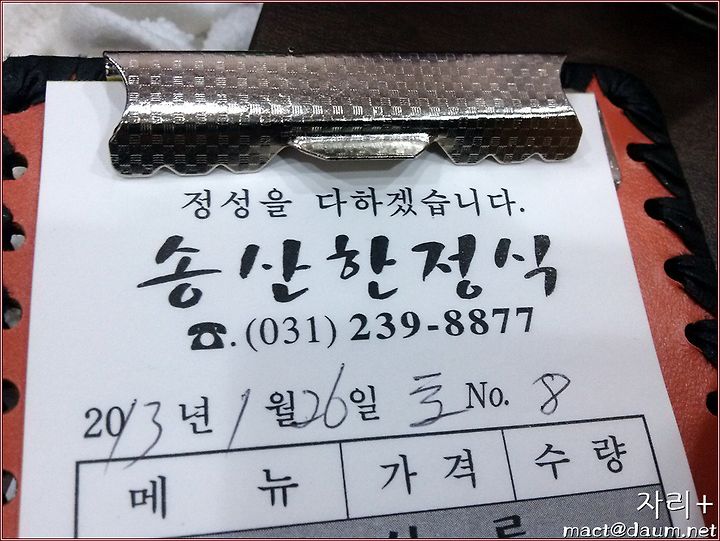 정성을 다하겠습니다.
송산한정식
☎. (031) 239-8877
2013년 1월 26일 토 No. 8
메 뉴 가 격 수 량
자리+
mact@daum.net